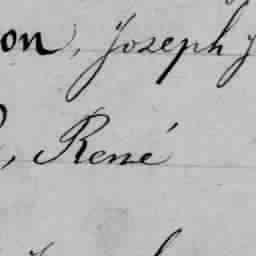 on, Joseph
, René